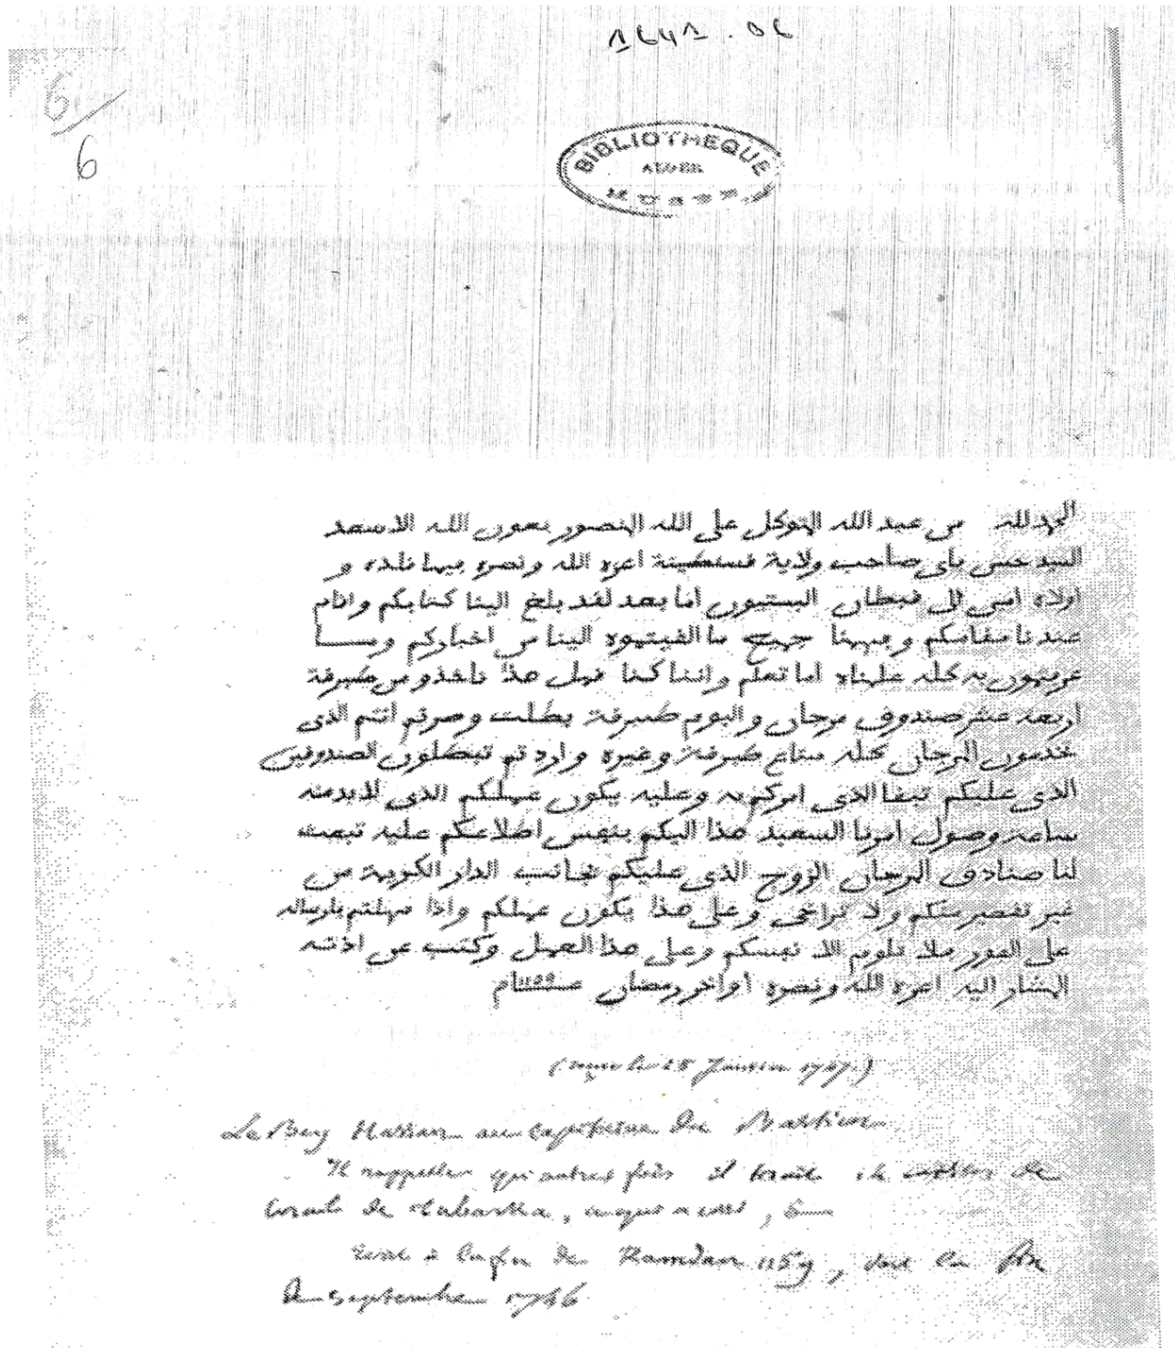 1641.06
6/6
BIBLIOTHEQUE
ALGER
MUSEE
الحمد لله من عبد الله المتوكل على الله المنصور بعون الله الاسعد
السيد حسن باي صاحب ولاية قسنطينة اعزه الله ونصره فيما قلده و
اولاه امين الى قبطان البستيون اما بعد لقد بلغ الينا كتابكم واقام
عندنا مقامكم وفهمنا جميع ما القيتموه الينا من اخباركم ومـــا
عرفتمون به كله علمناه اما تعلم واننا كنا قبل هذا ناخذو من طبرقة
اربعة عشر صندوق مرجان واليوم طبرقة بطلت وصرتم انتم الذى
تخدمون المرجان كله متاع طبرقة وغيره واردتم تبطلون الصندوقين
الذى عليكم تبقا الذى امركم به وعليه يكون عملكم الذى لابد منه
ساعة وصول امرنا السعيد هذا اليكم بنفس اطلاعكم عليه تبعث
لنا صنادق المرجان الزوج الذى عليكم لجانب الدار الكريمة من
غير تقصير منكم ولا تراخى وعلى هذا يكون عملكم واذا
على الفور فلا تلوم الا نفسكم وعلى هذا العمل وكتب عن اذنه
المشار اليه اعزه الله ونصره اواخر رمضان عــــام 1159
(reçu le 28 Janvier 1747.)
Le Bey Hassan au capitaine du Bastion
Il rappelle qu'autres fois il tirait 14 caisses de
Corail de Tabarka,
Ecrit à la fin de Ramdan 1159, soit la fin
de septembre 1746